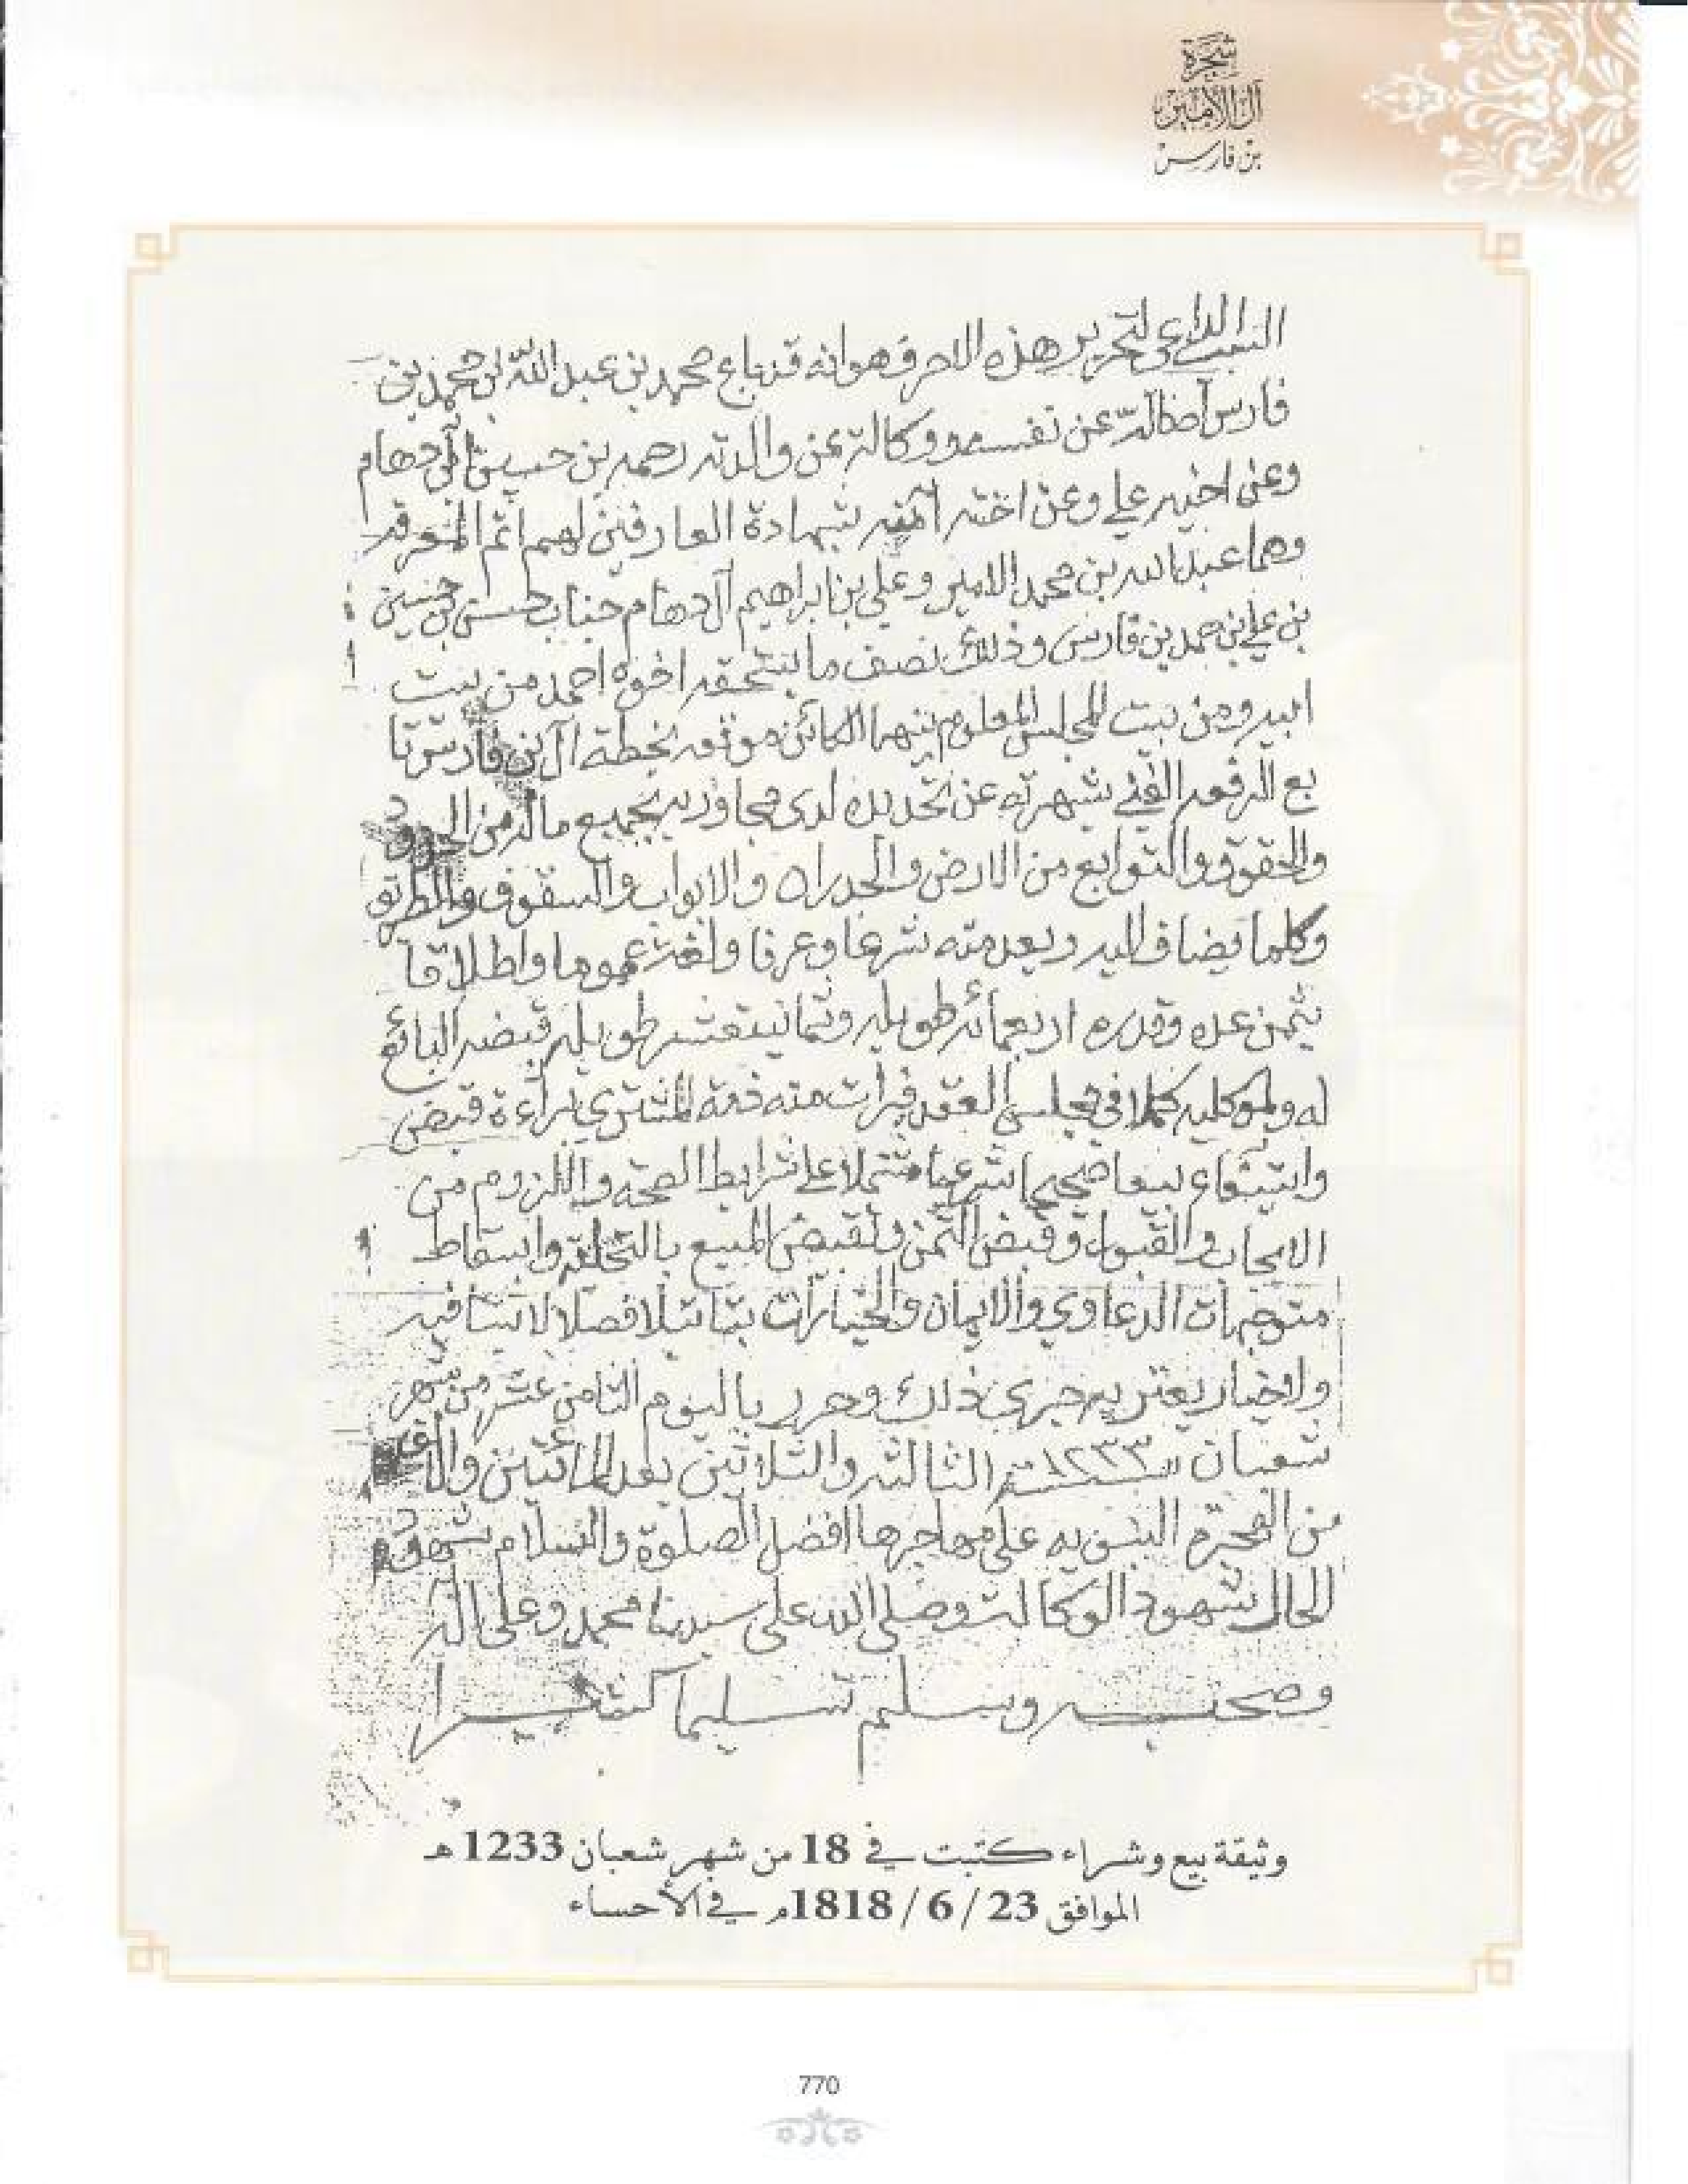 شجرة
آل الأمير
بن فارس
السبب الداعي لتحرير هذه الاحرف هو انه قد باع محمد بن عبد الله بن محمد بن
فارس اصالة عن نفسه ووكالة عن والدته رحمه بن حسين آل دهام
وعن اخيه علي وعن اخته آمنه بشهادة العارفين لهم اتم المعرفه
وهما عبد الله بن محمد الامير وعلي بن ابراهيم آل دهام جناب حسن بن حسين
بن علي بن حمد بن فارس وذلك نصف ما يستحقه اخوه احمد من بيت
ابيه ومن بيت المجلس المعلوم بينهما الكائن موقعه بخطة آل بن فارس تا
بع الرفعه الغني بشهرته عن تحديده لدى مجاوريه بجميع ماله من الحدود
والحقوق والتوابع من الارض والجدران والابواب والسقوف والطريق
وكلما يضاف اليه ويعد منه شرعا وعرفا ولغة عموما واطلاقا
بثمن عده وقدره اربعمائه طويله وثمانيتعشر طويله قبضه البائع
له ولموكليه كملا في مجلس العقد فبرأت منه ذمة المشتري براءة قبض
واستيفاء بيعا صحيحا شرعيا مشتملا على شرايط الصحه واللزوم من
الايجاب والقبول وقبض الثمن وتقبيض المبيع بالتخليه واسقاط
متوجهات الدعاوي والايمان والخيارات بتاتبلا فصلا لا
ولاخيار يعتريه جرى ذلك وحرر باليوم الثامن عشر من شهر
شعبان سنة ١٢٣٣ الثالثه والثلاثين بعد المائتين والالف
من الهجرة على مهاجرها افضل الصلوة والسلام شهود
الحال شهود الوكالة وصلى الله على سيدنا محمد وعلى آله
وصحبه وسلم تسليما كثيرا
وثيقة بيع وشراء كتبت في 18 من شهر شعبان 1233 هـ
الموافق 23 / 6 / 1818م في الأحساء
770